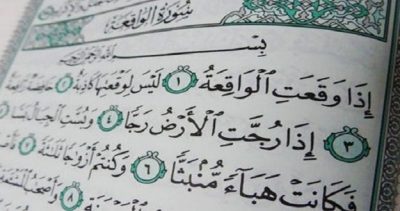 سُورَةُ الْوَاقِعَةِ
بِسْمِ اللَّهِ الرَّحْمَٰنِ الرَّحِيمِ
إِذَا وَقَعَتِ ٱلْوَاقِعَةُ ١ لَيْسَ لِوَقْعَتِهَا كَاذِبَةٌ ٢ خَافِضَةٌ رَّافِعَةٌ
٣ إِذَا رُجَّتِ ٱلْأَرْضُ رَجًّا ٤ وَبُسَّتِ ٱلْجِبَالُ بَسًّا
فَكَانَتْ هَبَآءً مُّنۢبَثًّا ٦ وَكُنتُمْ أَزْوَٰجًا ثَلَٰثَةً ٧
٨ وَأَصْحَٰبُ